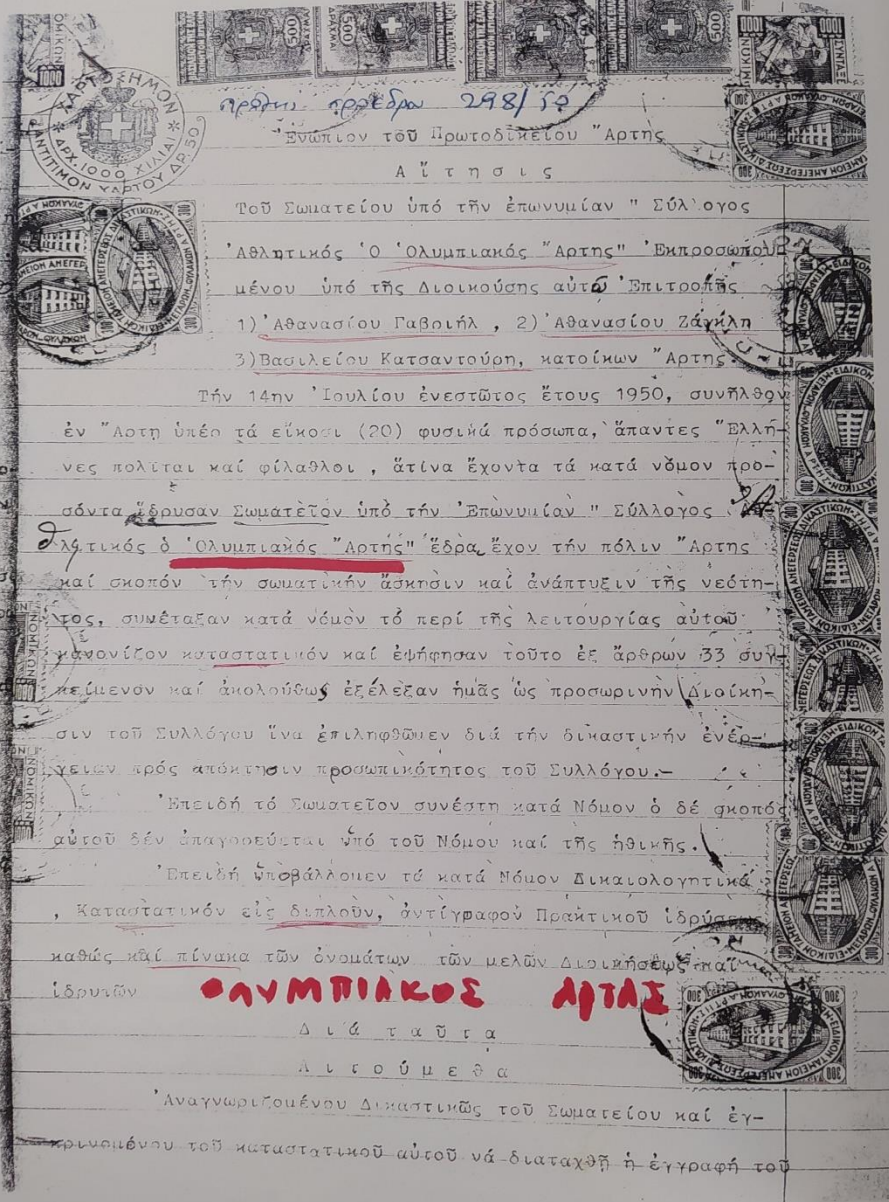 ΧΑΡΤΟΣΗΜΟΝ
ΔΡΧ. 1000 ΧΙΛΙΑΙ
ΑΝΤΙΤΙΜΟΝ ΧΑΡΤΟΥ ΔΡ. 50
500
500
500
1000
1000
298/50
Ἐνώπιον τοῦ Πρωτοδικείου Ἄρτης
Αἴτησις
Τοῦ Σωματείου ὑπό τήν ἐπωνυμίαν " Σύλλογος
Ἀθλητικός Ὁ Ὀλυμπιακός Ἄρτης" Ἐκπροσωπου-
μένου ὑπό τῆς Διοικούσης αὐτό Ἐπιτροπῆς
1) Ἀθανασίου Γαβριήλ , 2) Ἀθανασίου Ζάγκλη
3) Βασιλείου Κατσαντούρη, κατοίκων Ἄρτης
Τήν 14ην Ἰουλίου ἐνεστῶτος ἔτους 1950, συνῆλθον
ἐν Ἄρτῃ ὑπέρ τά εἴκοσι (20) φυσικά πρόσωπα, ἅπαντες Ἕλλη-
νες πολῖται καί φίλαθλοι , ἅτινα ἔχοντα τά κατά νόμον προ-
σόντα ἵδρυσαν Σωματεῖον ὑπό τήν Ἐπωνυμίαν " Σύλλογος Ἀ-
θλητικός ὁ Ὀλυμπιακός Ἄρτης" ἕδρα ἔχον τήν πόλιν Ἄρτης
καί σκοπόν τήν σωματικήν ἄσκησιν καί ἀνάπτυξιν τῆς νεότη-
τος, συνέταξαν κατά νόμον τό περί τῆς λειτουργίας αὐτοῦ
κανονίζον καταστατικόν καί ἐψήφησαν τοῦτο ἐξ ἄρθρων 33 συγ-
κείμενον καί ἀκολούθως ἐξέλεξαν ἡμᾶς ὡς προσωρινήν Διοίκη-
σιν τοῦ Συλλόγου ἵνα ἐπιληφθῶμεν διά τήν δικαστικήν ἐνέρ-
γειαν πρός απόκτησιν προσωπικότητος τοῦ Συλλόγου.-
Ἐπειδή τό Σωματεῖον συνέστη κατά Νόμον ὁ δέ σκοπός
αὐτοῦ δέν ἀπαγορεύεται ὑπό τοῦ Νόμου καί τῆς ἠθικῆς.
Ἐπειδή ὑποβάλλομεν τά κατά Νόμον Δικαιολογητικά
, Καταστατικόν εἰς διπλοῦν, ἀντίγραφον Πρακτικοῦ ἱδρύσεως
καθώς καί πίνακα τῶν ὀνομάτων τῶν μελῶν Διοικήσεως καί
ἱδρυτῶν ΟΛΥΜΠΙΑΚΟΣ ΑΡΤΑΣ
Διά ταῦτα
Αἰτούμεθα
Ἀναγνωριζομένου Δικαστικῶς τοῦ Σωματείου καί ἐγ-
κρινομένου τοῦ καταστατικοῦ αὐτοῦ νά διαταχθῇ ἡ ἐγγραφή τοῦ